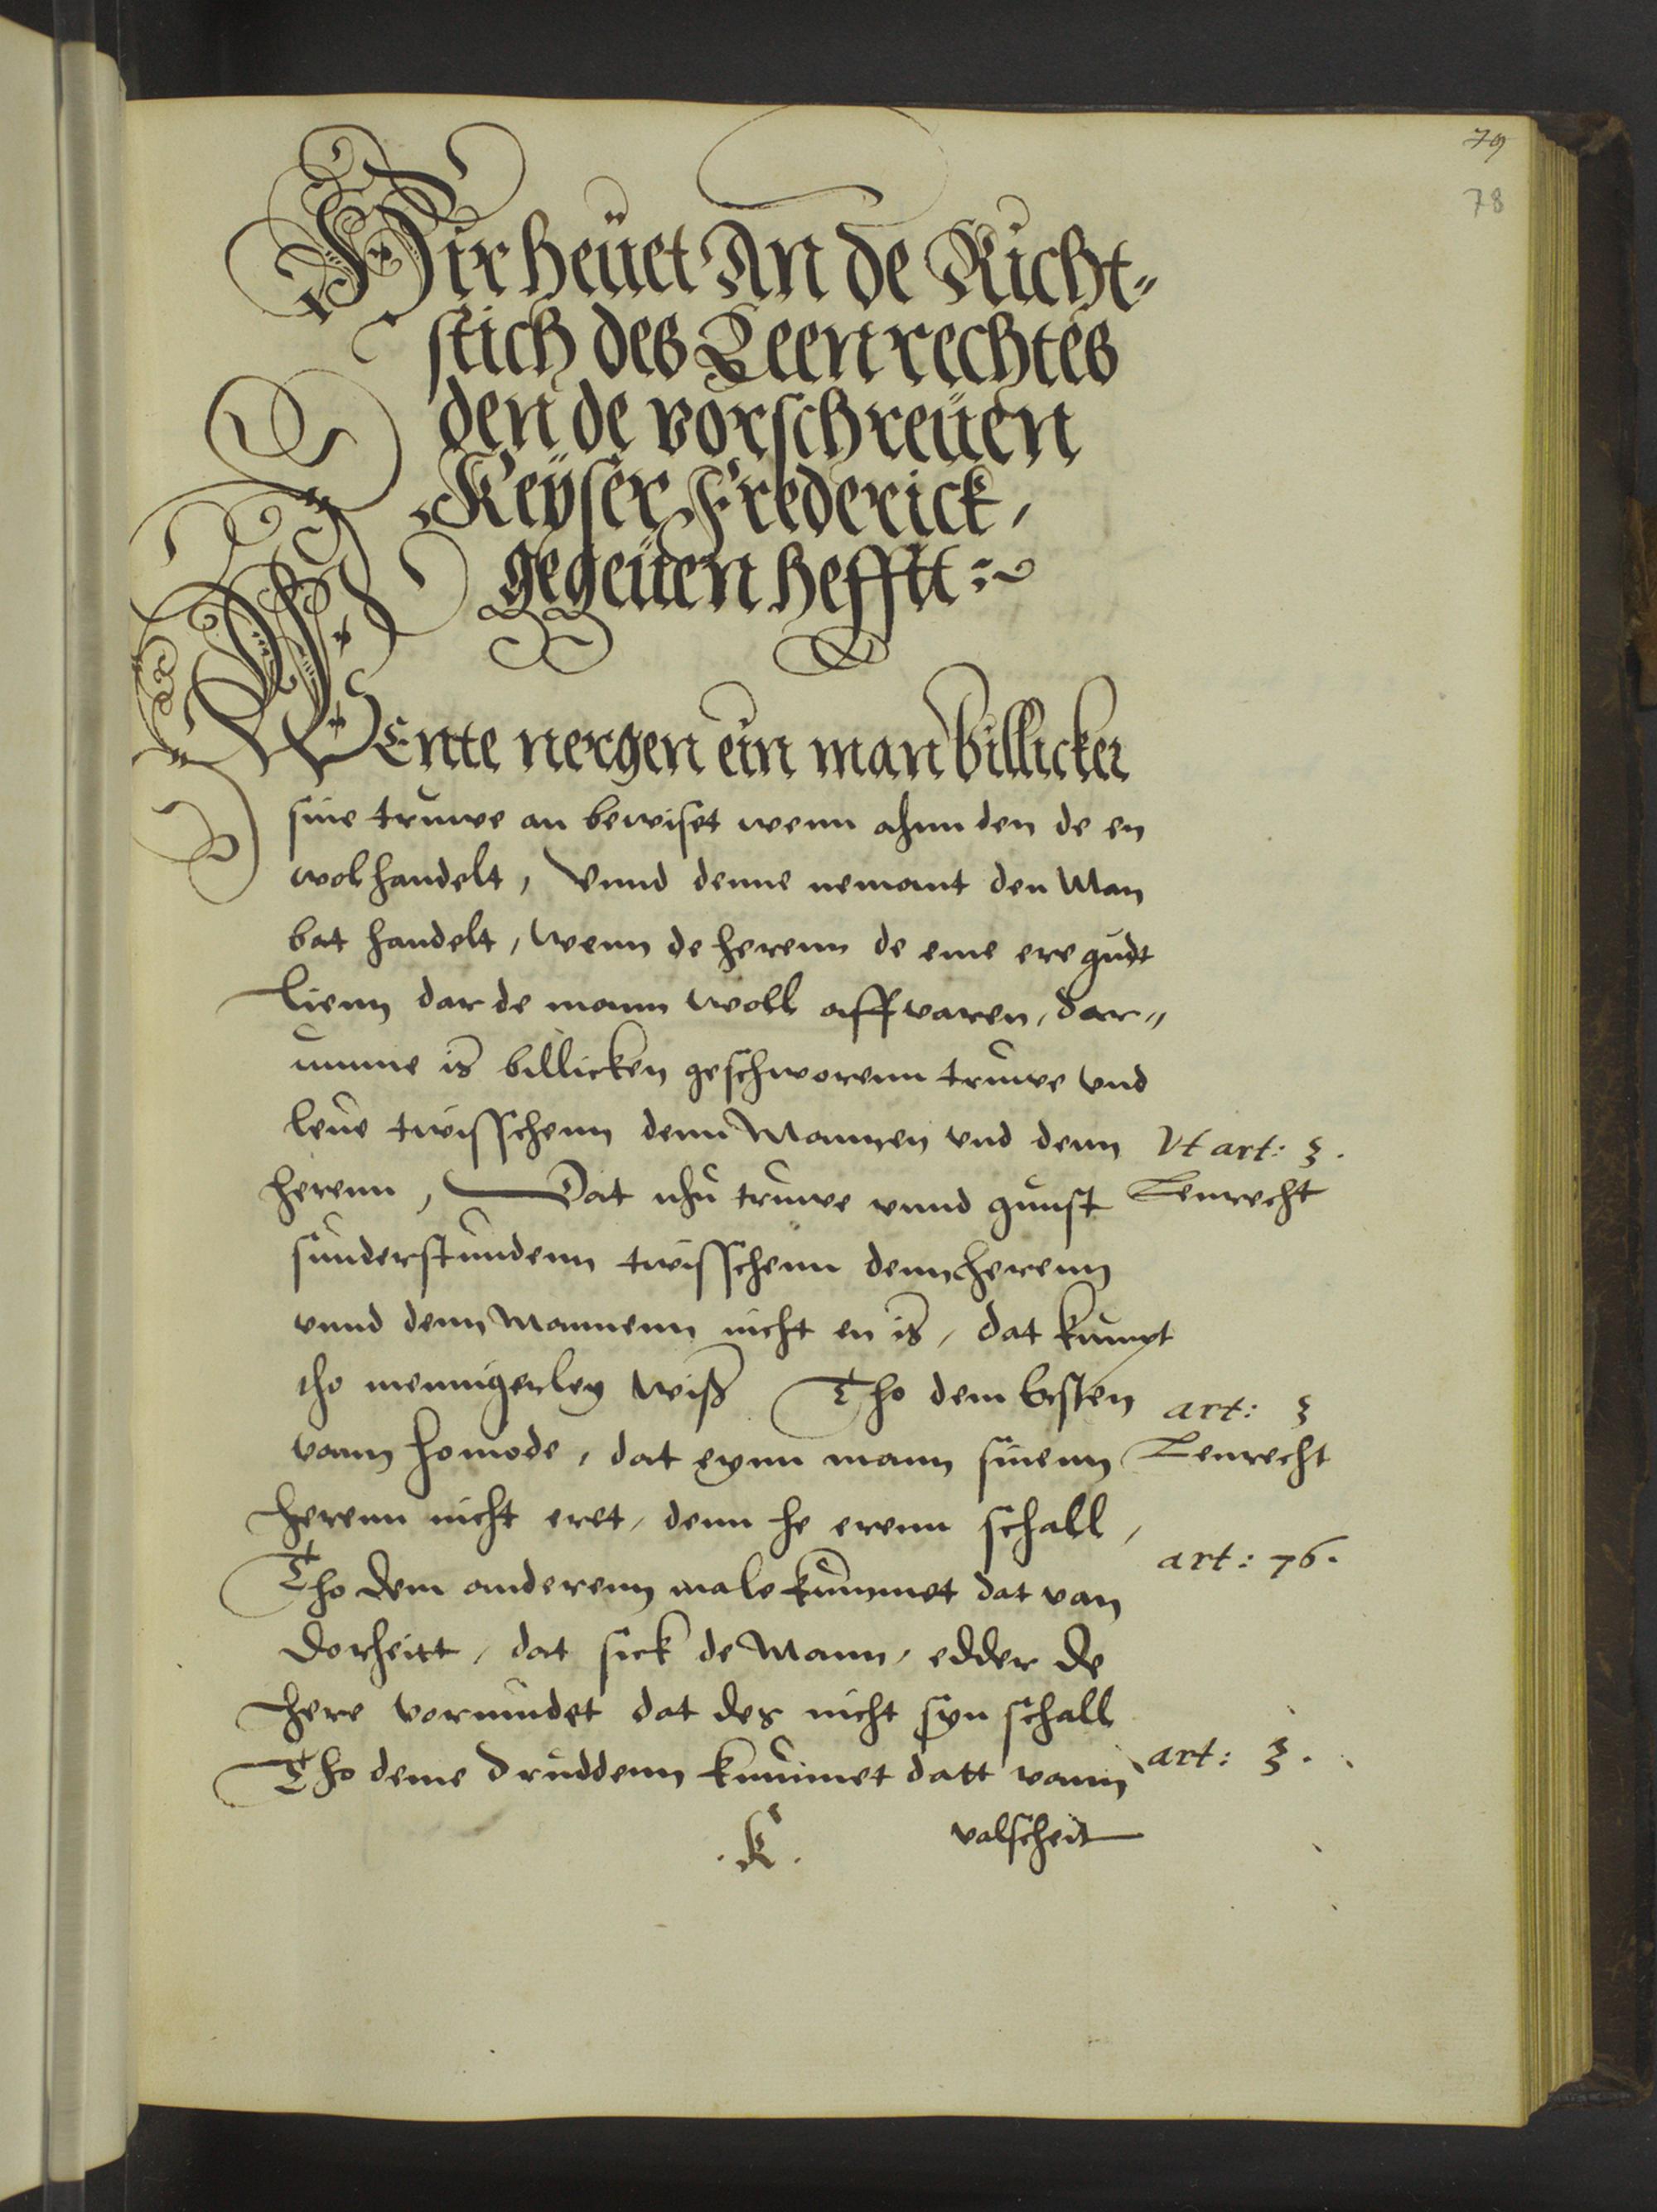 79
78
Hir heuet An de Richt-
stich des Leenrechtes
den de vorschreuen
Keyser Frederick,
gegeuen hefftt:~
WEnte nergen ein man billicker
sine truwe an bewiset wenn ahnn den de en
wol handelt, Vnnd denne nemant den Man
bat handelt, Wenn de herenn de eme ere gudt
lienn dar de mann woll aff varen, dar-
umme is billicken geschworenn truwe vnd
leue twisschenn denn Mannen vnd denn
Vt art: 3.
Lenrecht
herenn, Dat nhu truwe vnnd gunst
sunderstundenn twisschenn denn herenn
vnnd denn Mannenn nicht en is, dat kumpt
tho mennigerley wiß Tho dem Ersten
art: 3
Lenrecht
vann homode, dat eynn mann sinenn
herenn nicht eret, denn he erenn schall,
art: 76.
Tho dem anderenn male kummet dat van
Dorheitt, dat sick de Mann, edder de
here vormudet dat des nicht syn schall
Tho deme Druddenn kummet datt vann
art: 3.
.K. valscheit